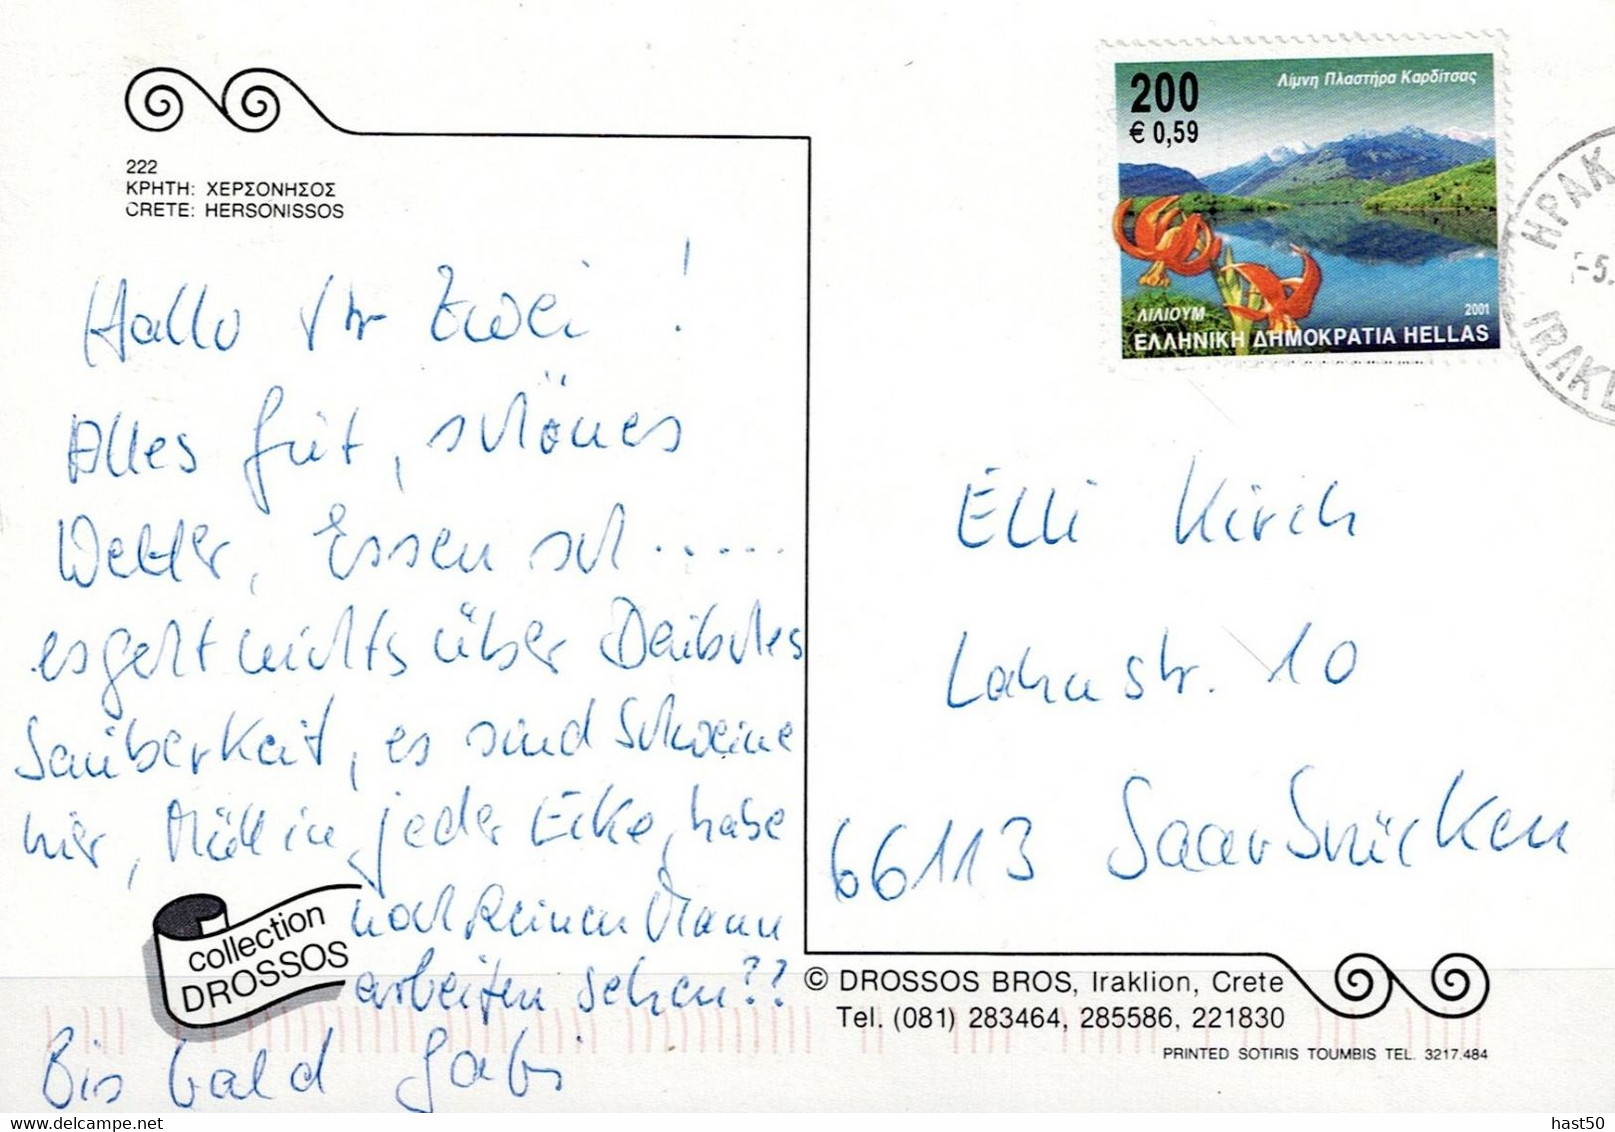 222
ΚΡΗΤΗ: ΧΕΡΣΟΝΗΣΟΣ
CRETE: HERSONISSOS
Hallo Ihr Zwei !
Alles gut, schönes
Wetter, Essen sch.....
es geht nichts über Deutsches
Sauberkeit, es sind Schweine
hier, Müll in jeder Ecke, habe
noch keinen Mann
arbeiten sehen??
Bis bald Gabi
collection
DROSSOS
200
€ 0,59
Λίμνη Πλαστήρα Καρδίτσας
ΛΙΛΙΟΥΜ
2001
ΕΛΛΗΝΙΚΗ ΔΗΜΟΚΡΑΤΙΑ HELLAS
ΗΡΑΚ
-5.
IRAKL
Elli Kirch
Lahnstr. 10
66113 Saarbrücken
© DROSSOS BROS, Iraklion, Crete
Tel. (081) 283464, 285586, 221830
PRINTED SOTIRIS TOUMBIS TEL. 3217.484
hast50